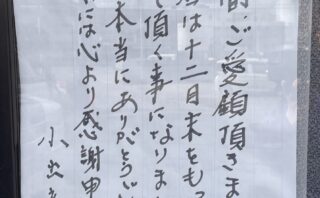 間、ご愛顧頂きま
は十二月末をもっ
て頂く事になりま
本当にありがとう
には心より感謝申
小出